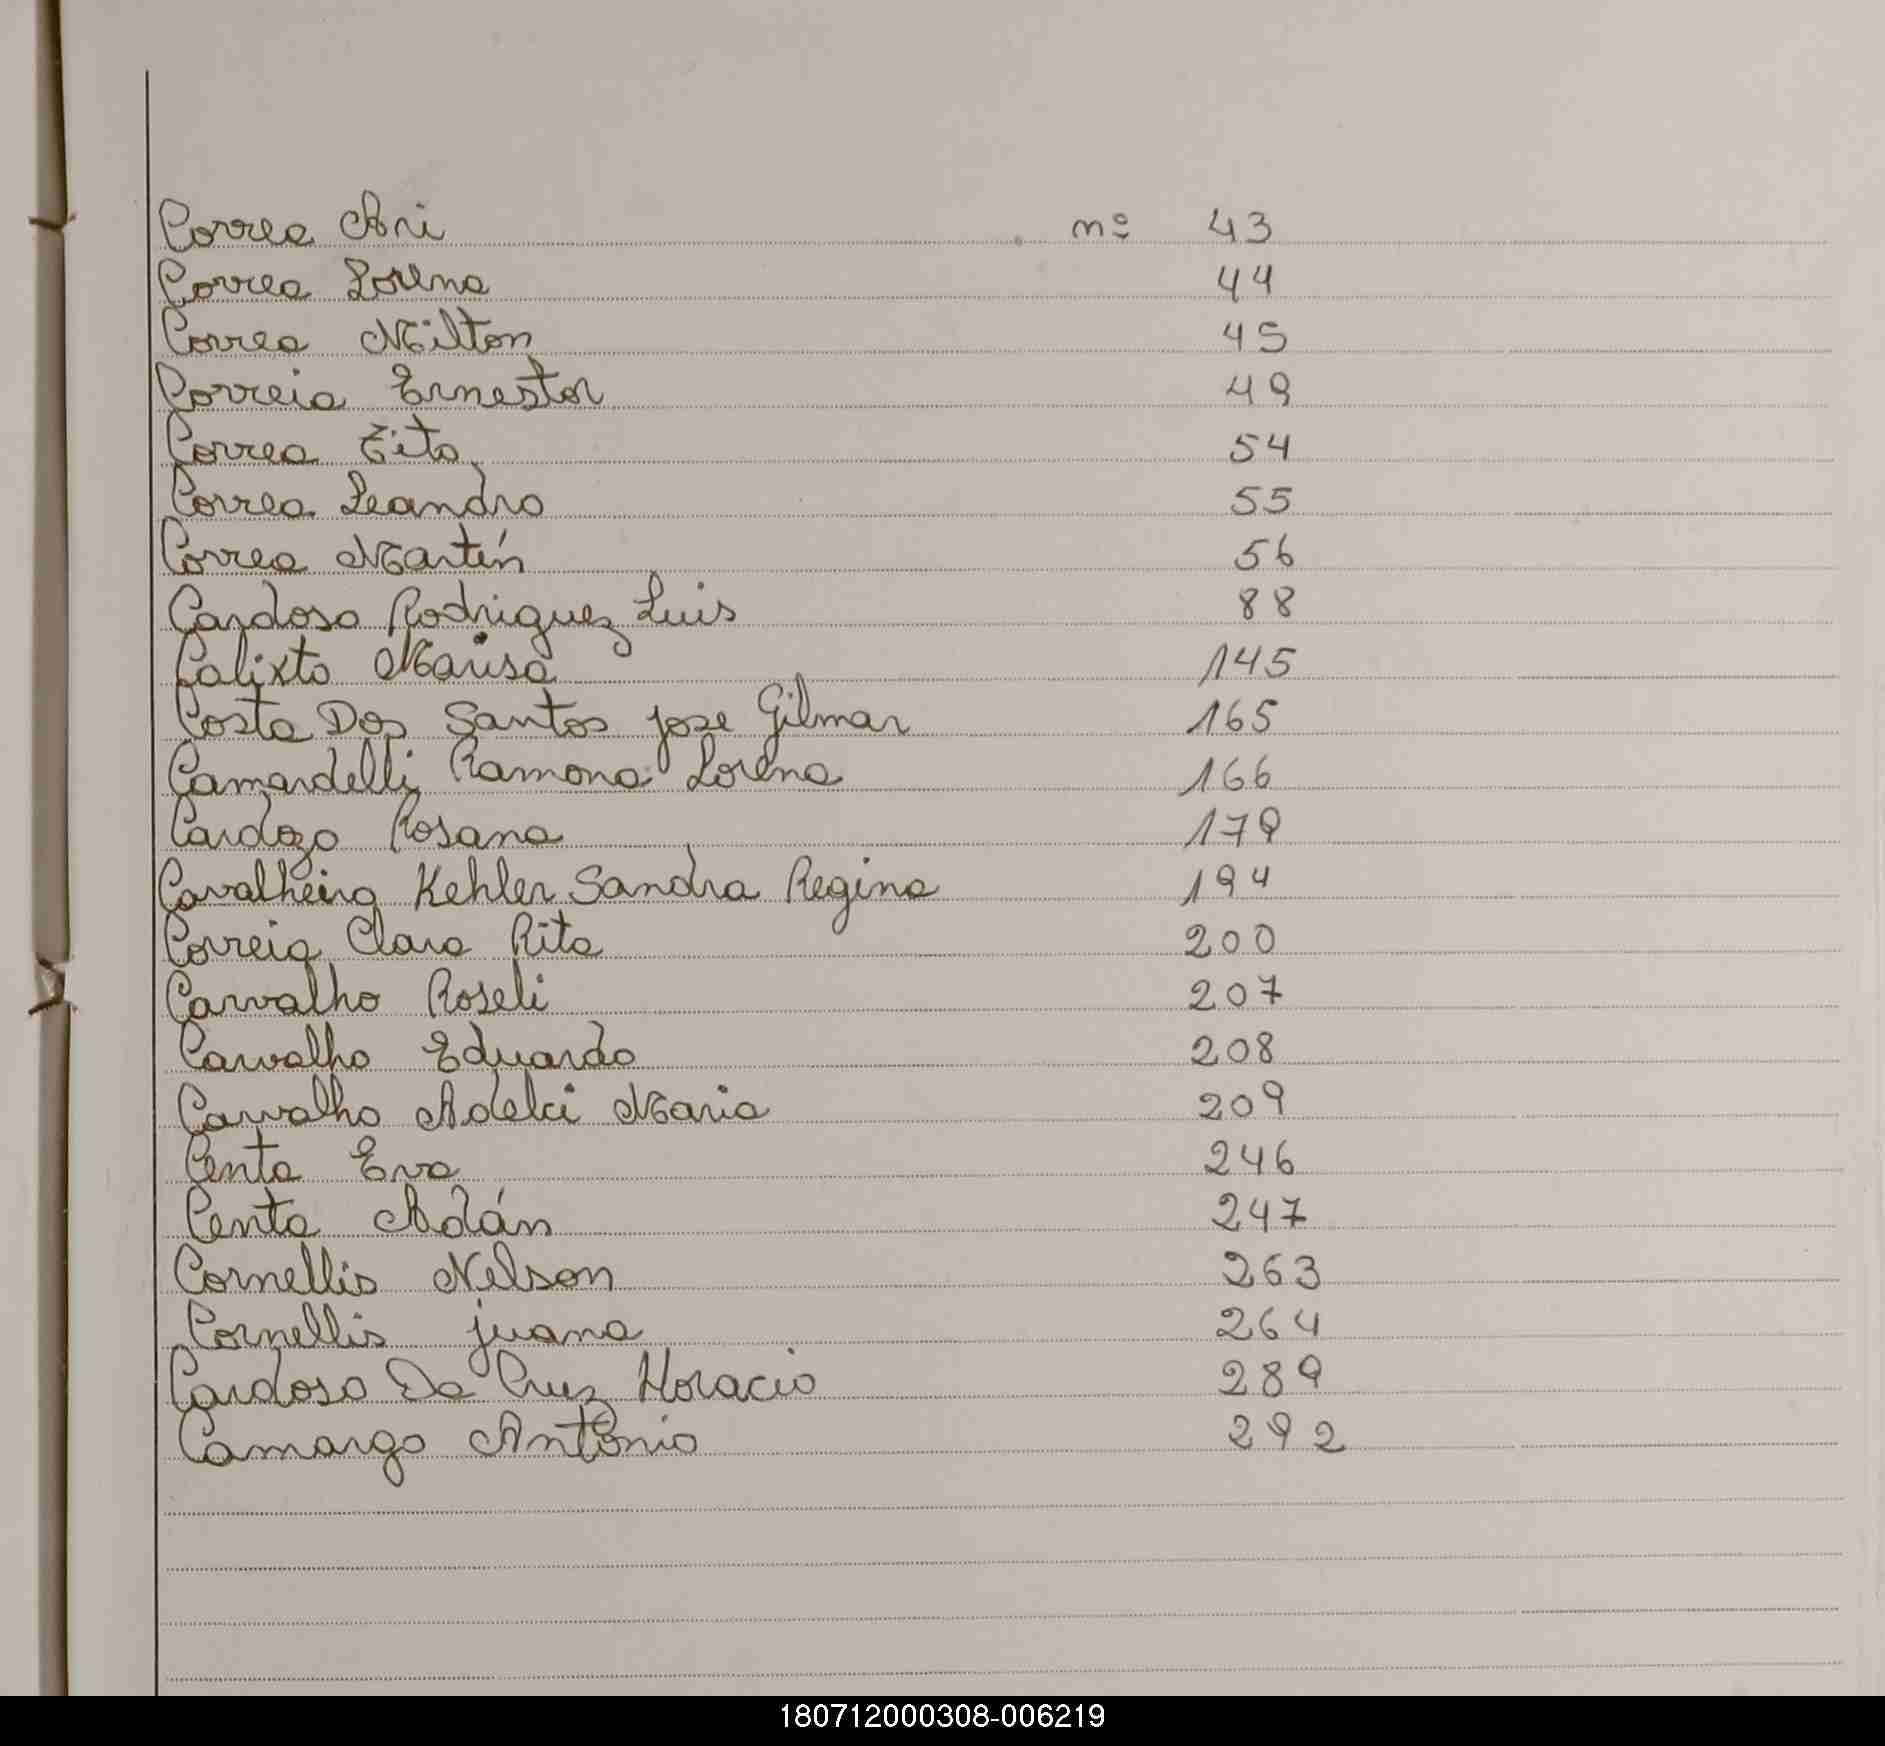 Correa Ari nº 43
Correa Lorena 44
Correa Milton 45
Correia Ernestor 49
Correa Tito 54
Correa Leandro 55
Correa Martín 56
Cardoso Rodriguez Luis 88
Calixto Marisa 145
Costa Dos Santos jose Gilmar 165
Camardelli Ramona Lorena 166
Cardozo Rosana 179
Cavalheiro Kehler Sandra Regina 194
Correia Clara Rita 200
Carvalho Roseli 207
Carvalho Eduardo 208
Carvalho Adelci Maria 209
Centa Eva 246
Centa Adán 247
Cornellis Nelson 263
Cornellis juana 264
Cardoso Da Cruz Horacio 289
Camargo Antônio 292
180712000308-006219